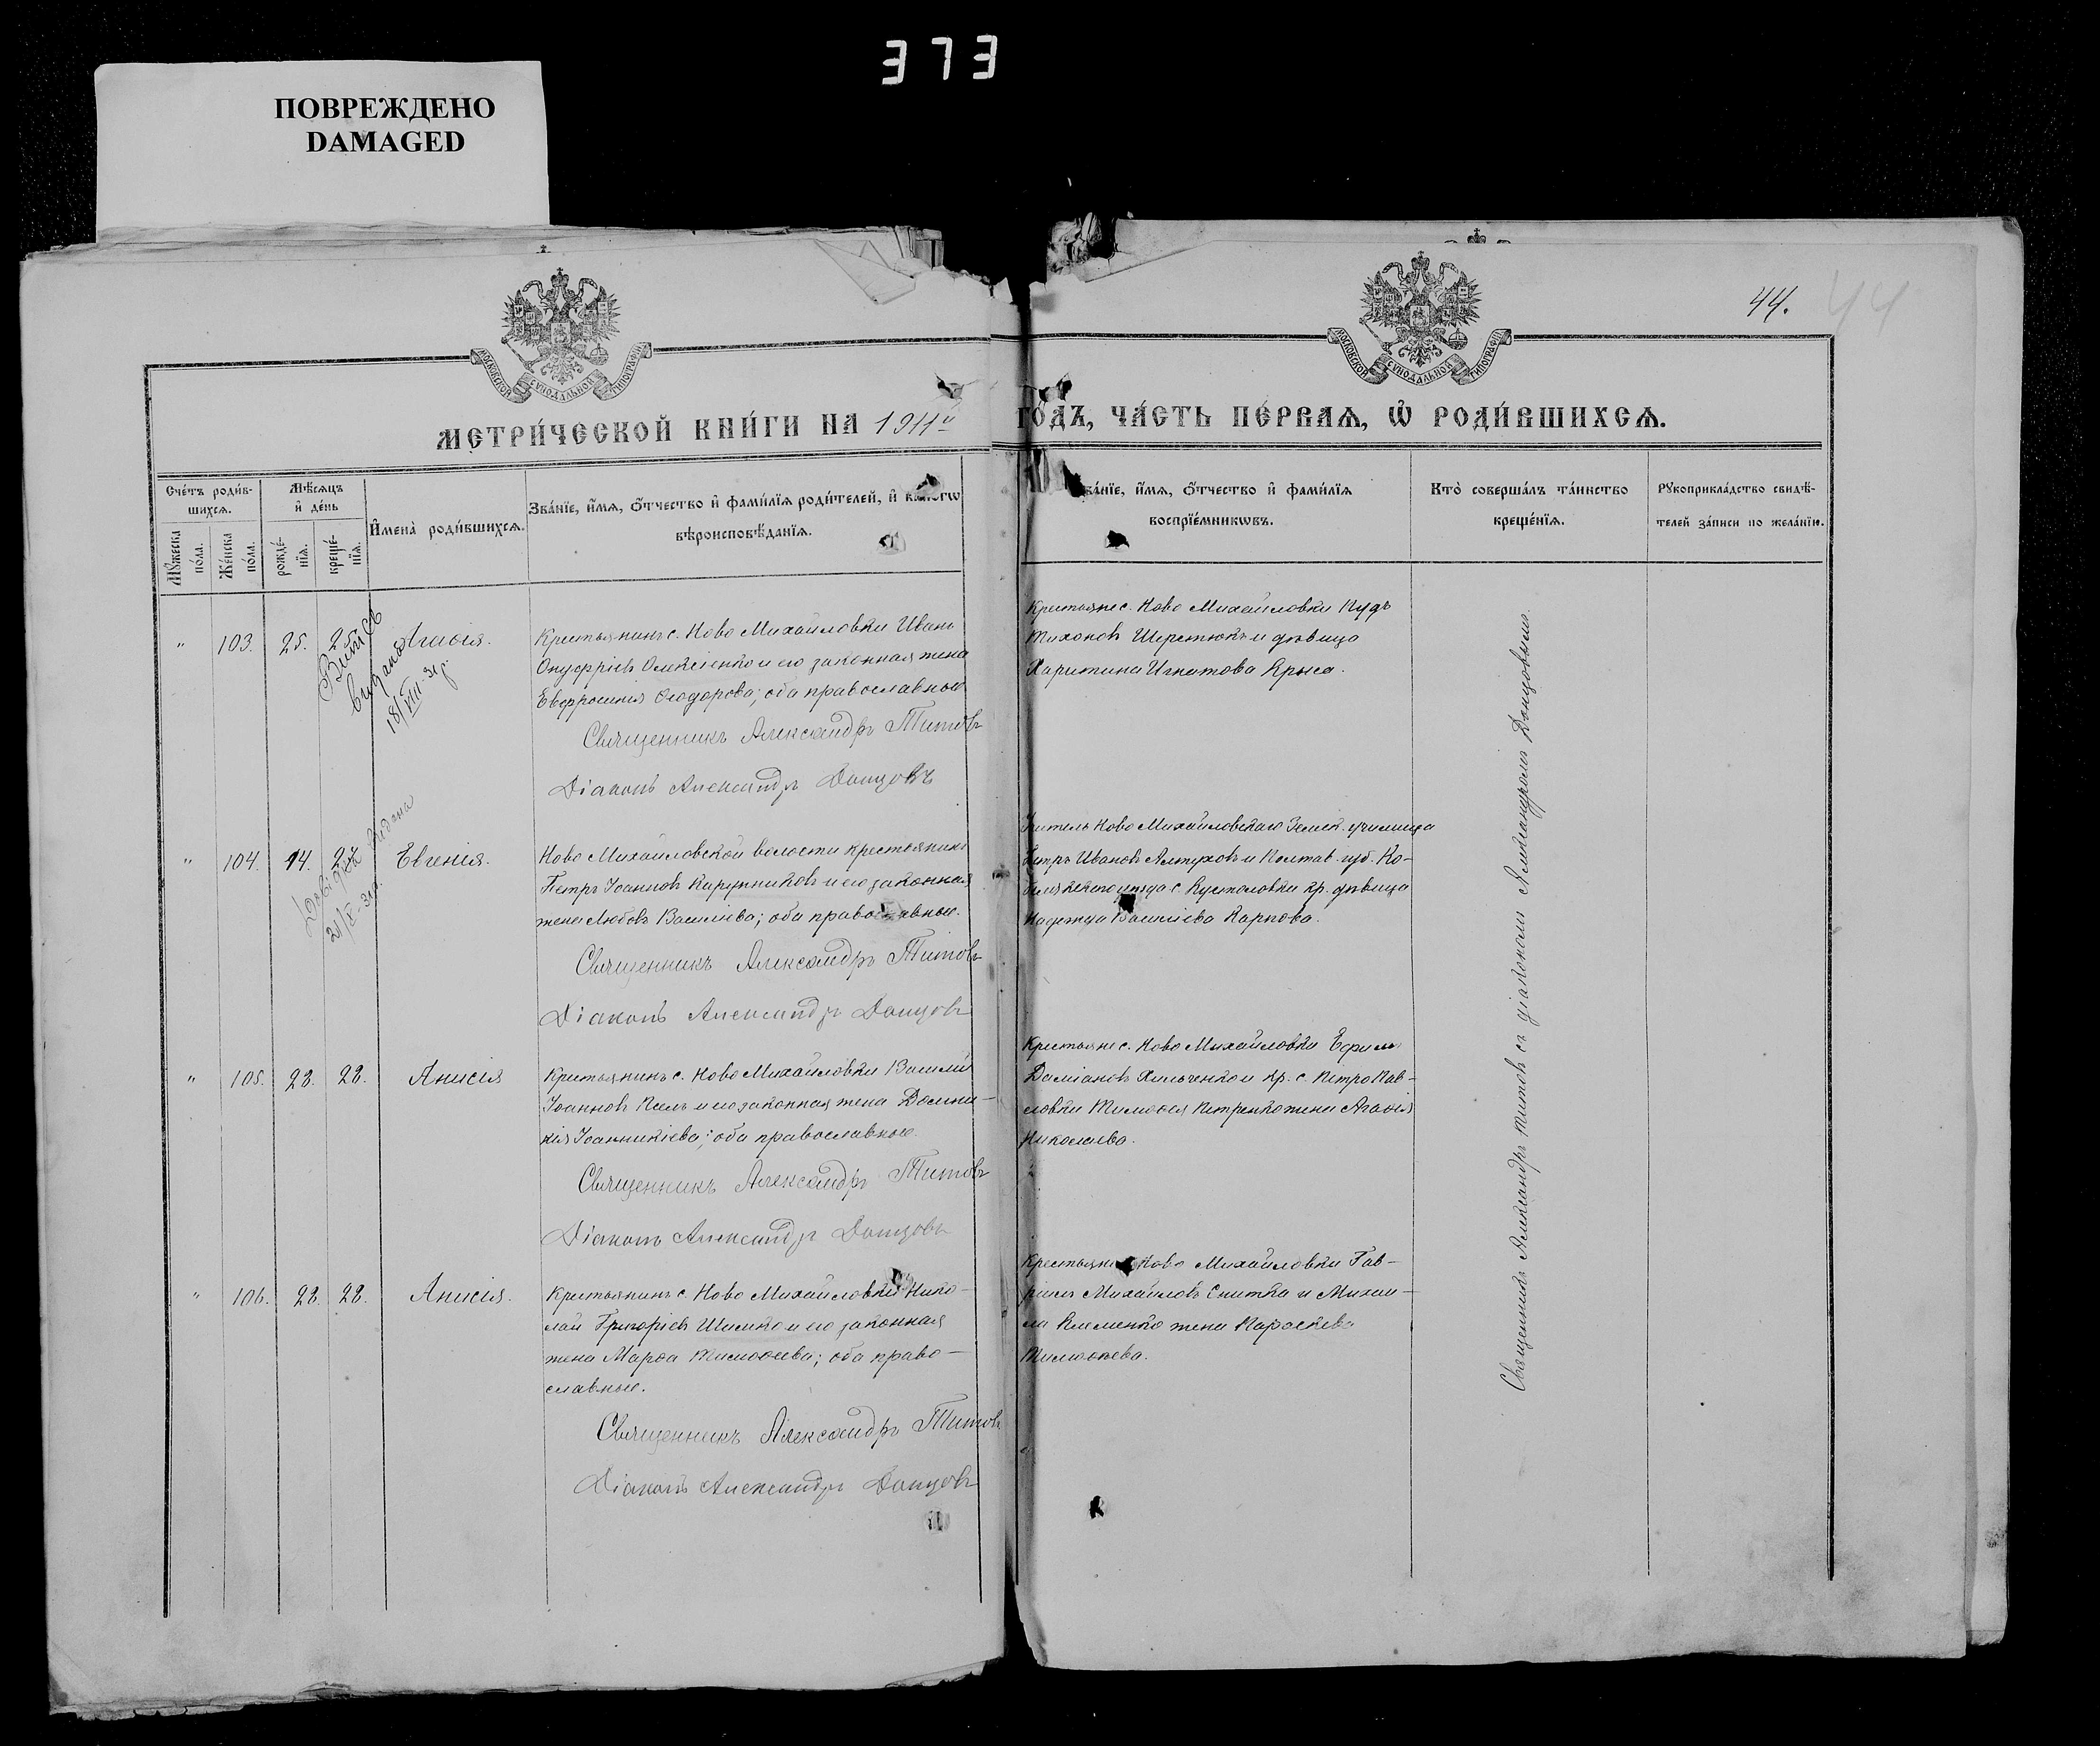 373
ПОВРЕЖДЕНО
DAMAGED
44.
44
МОСКОВСКОЙ СУНОДАЛЬНОЙ ТИПОГРАФІИ
МОСКОВСКОЙ СУНОДАЛЬНОЙ ТИПОГРАФІИ
МЕТРИ́ЧЕСКОЙ КНИ́ГИ НА 1911й ГО́ДЪ, ЧА́СТЬ ПЕ́РВАЯ, Ѽ РОДИ́ВШИХСЯ.
Сче́тъ роди́в-
шихся.
Мꙋжеска по́ла.
Же́нска по́ла.
Мѣ́сяцъ
и҆ де́нь
рожде́-
нїя.
креще́-
нїя.
И҆мена̀ роди́вшихся.
Зва́нїе, и҆́мя, ѻ҆́тчество и҆ фами́лїя роди́телей, и҆ како́гѡ
вѣроисповѣ́данїя.
Зва́нїе, и҆́мя, ѻ҆́тчество и҆ фами́лїя
воспрїе́мникѡвъ.
Кто̀ соверша́лъ та́инство
креще́нїя.
Рꙋкоприкла́дство свидѣ́-
телей за́писи по жела́нїю.
" 103. 25. 25. Агаѳія.
Витяг
видано
18/VIII-31 р.
Крестьянинъ с. Ново Михайловки Иванъ
Онуфріевъ Олексіенко и его законная жена
Евфросинія Ѳеодорова; оба православные
Священникъ Александръ Титовъ
Діаконъ Александръ Донцовъ
Крестьяне с. Ново Михайловки
Тихоновъ Шерстюкъ и дѣвица
Харитина Игнатова Крыса.
" 104. 14. 27. Евгенія.
видана
21/X-31р.
Ново Михайловской волости крестьянинъ
Петръ Іоанновъ и его законная
жена Любовь Василіева; оба православные.
Священникъ Александръ Титовъ
Діаконъ Александръ Донцовъ
Учитель Ново Михайловскаго Земск. училища
Петръ Ивановъ и Полтав. губ. Ко-
уѣзда с. кр. дѣвица
Надежда Василіева Карпова.
" 105. 28. 28. Анисія
Крестьянинъ с. Ново Михайловки Василій
Іоанновъ и его законная жена Домни-
кія Іоанникіева; оба православные.
Священникъ Александръ Титовъ
Діаконъ Александръ Донцовъ
Крестьяне с. Ново Михайловки Ефимъ
Даміановъ Хильченко и кр. с. Петро Пав-
ловки Тимоѳея Петренко жена Агаѳія
Николаева.
" 106. 28. 28. Анисія.
Крестьянинъ с. Ново Михайловки Нико-
лай Григоріевъ и его законная
жена Марѳа Тимоѳеева; оба право-
славные.
Священникъ Александръ Титовъ
Діаконъ Александръ Донцовъ
Крестьяне Ново Михайловки Гав-
риилъ Михайловъ Снитка и Михаи-
ла Клименко жена Параскева
Тимоѳеева.
Священникъ Александръ Титовъ съ діакономъ Александромъ Донцовымъ.